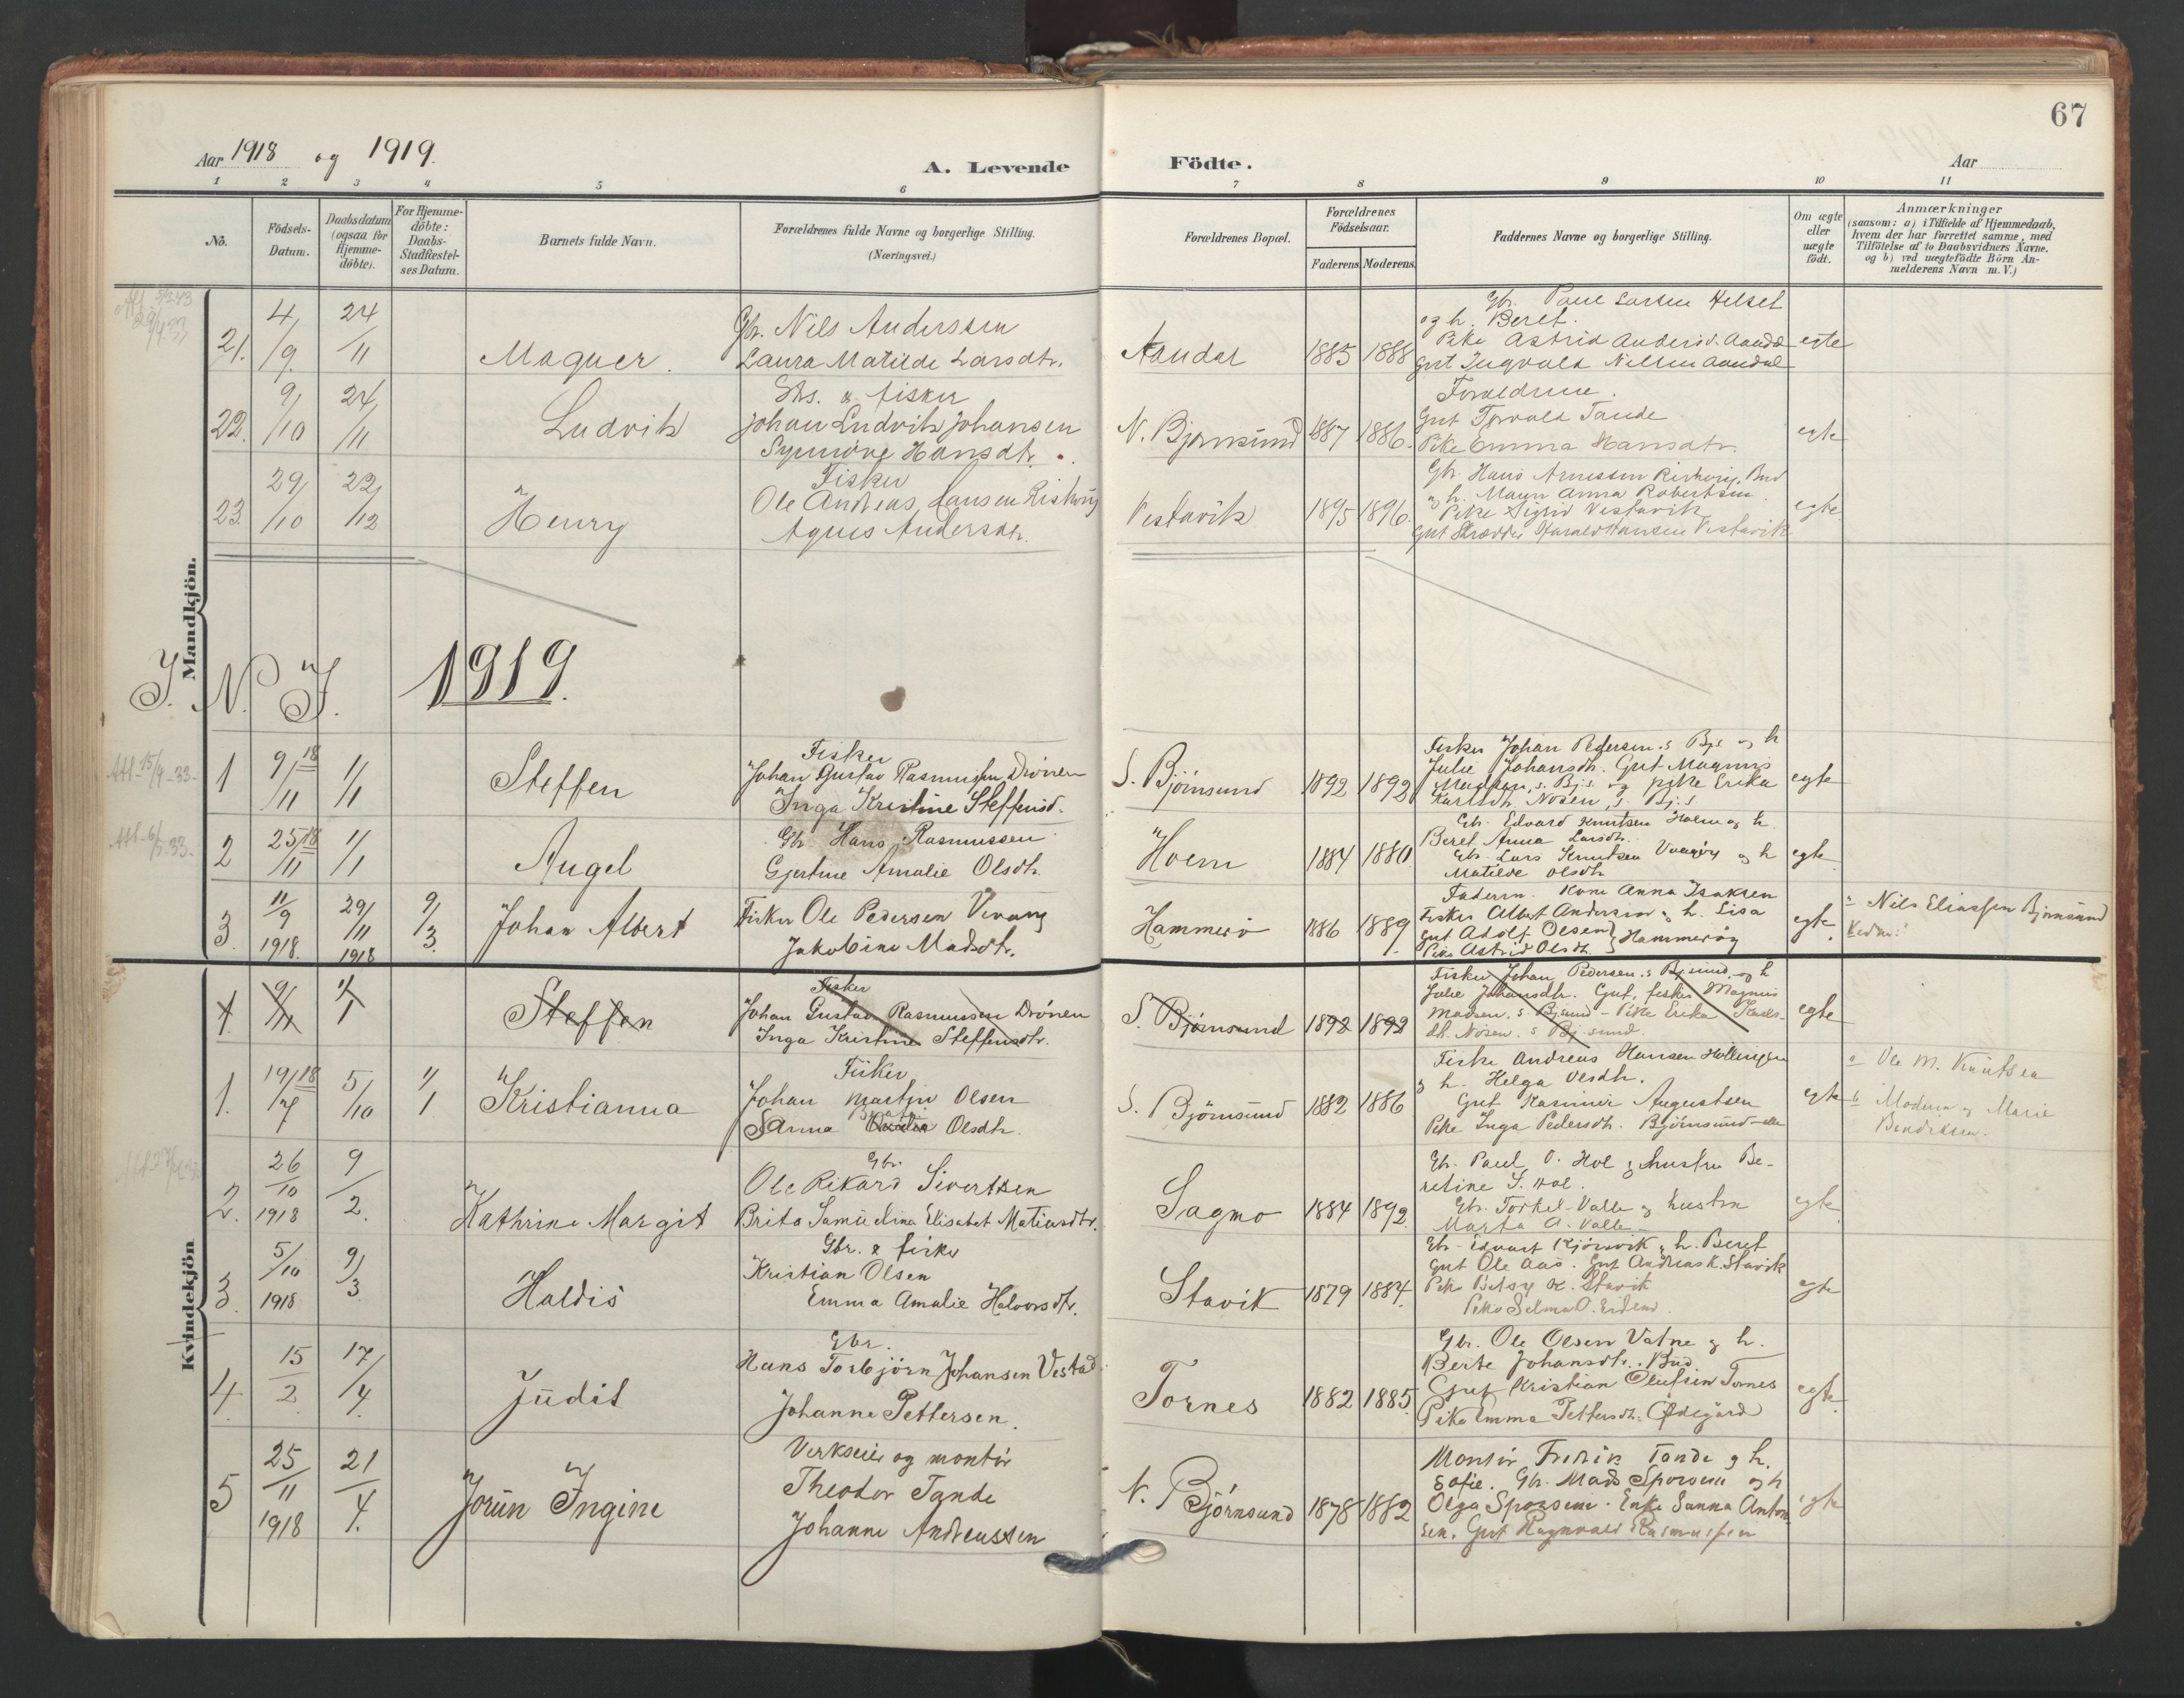 67
Aar 1918 og 1919.
A. Levende Födte.
Aar
1 2 3 4 5 6 7 8 9 10 11
No.
Födsels-Datum.
Daabsdatum (ogsaa for Hjemme-döbte).
For Hjemme-döbte: Daabs-Stadfæstel-ses Datum.
Barnets fulde Navn.
Forældrenes fulde Navne og borgerlige Stilling. (Næringsvei.)
Forældrenes Bopæl.
Forældrenes Födselsaar.
Faderens. Moderens.
Faddernes Navne og borgerlige Stilling.
Om ægte eller uægte födt.
Anmærkninger
(saasom: a) i Tilfælde af Hjemmedaab,
hvem der har forrettet samme, med
Tilföielse af to Daabsvidners Navne.
og b) ved uægtefödte Börn An-
melderens Navn m. V.)
Mandkjön.
21. 4/9. 24/11 Magner.
Gbr. Nils Anderssen
Laura Matilde Larsdtr.
Aandal 1885 1888
Gbr. Paul Larsen Helset
og h. Beret.
Pike Astrid
Gut Ingvald Nilsen Aandal
egte
22. 9/10 24/11 Ludvik
Sbs. & fisker
Johan Ludvik Johansen
Synnöve Hansdtr.
N. Bjørnsund 1887 1886.
Foreldrene.
Gut Torvald Tande
Pike Emma Hansdtr.
egte
23. 29/10 22/12 Henry
Fisker
Ole Andreas Hansen
Agnes Andersdtr.
Vestavik 1895 1896.
Gbr. Hans Arnessen Bud
og h. Anna Robertsen
Pike Sigrid Vestavik
Gut Skrædder Harald Hansen Vestavik
egte
I. N. J. 1919.
Afl. 15/9-33-
1 9/11 18 1/1 Steffen
Fisker
Johan Gustav Rasmussen Drönen
Inga Kristine Steffensd.
S. Björnsund 1892 1892
Fisker Johan Pedersen s. Bjs og h
Julie Johansdtr. Gut Magnus
Madsen, s. Bj.s. og pike Erika
Karlsdtr. Nosen, s. Bj.s
egte
2 25/11 18 1/1 Angel
Gbr Hans Rasmussen
Gjertine Amalie Olsdtr.
Hoem 1884 1880
Gbr. Edvard Knutsen Holm og h.
Beret Anna Larsdtr.
Gbr. Lars Knutsen og h
Matilde Olsdtr
egte
3. 11/9 1918. 29/11 1918 9/3. Johan Albert
Fisker Ole Pedersen
Jakobine Madsdtr.
Hammerö 1886 1889.
Faderen. Kone Anna Isaksen
Fisker Albert Andersen og h. Lisa
Gut Adolf Olsen
Pike Astrid Olsdtr. } Hammeröy
egte.
Nils Eliassen Bjørnsund
Kvindekjön
1. 9/11 1/1 Steffen
Fisker
Johan Gustav Rasmussen Drönen
Inga Kristine Steffensdtr.
S. Björnsund 1892 1892
Fisker Johan Pedersen s Bjsund. og h
Julie Johansdtr. Gut, fisker Magnus
Madsen, s. Bjsund - Pike Erika Karls-
dtr. Nosen. s Bj.sund.
egte
1. 19/7 18 5/10 1/1 Kristianna
Fisker
Johan Martin Olsen
Anna Olsdtr.
S. Björnsund 1882 1886
Fisker Andreas Hansen
og h. Helga Olsdtr.
Gut Kasimir Augustsen
Pike Inga Pedersdtr. Björnsund
egte
a Ole M. Knutsen
b Moderen og Marie
Bendiksen.
2. 26/10 1918 9/2. Kathrine Margit
Gbr.
Ole Rikard Sivertsen
Brite Samueline Elisabet Matiasdtr.
Sagmo 1884 1892
Gbr. Paul O. Hol og hustru Be-
retine S. Hol.
Gbr. Torkel Valle og hustru
Marta A. Valle
egte
3. 5/10 1918 9/3. Haldis
Gbr. & fisker
Kristian Olsen
Emma Amalie Halvorsdtr.
Stavik 1879 1884.
Gbr. Edvart Kjörsvik & h. Beret
Gut Ole Aas. Gut Andreas K. Stavik
Pike Betsy K. Stavik
Pike Selma O.
egte
4. 15/2 17/4. Judit
Gbr.
Hans Torbjörn Johansen Vestad
Johanne Pettersen.
Tornes 1882 1885.
Gbr. Ole Olsen Vatne og h.
Berte Johansdtr. Bud.
Gut Kristian Olufsen Tornes
Pike Emma Pettersdtr. Ødegård
egte.
5 25/11 1918 21/4. Jorun Ingine
Verkseier og montör
Theodor Tande
Johanne Andreassen
N. Björnsund 1878 1882
Montör Fredrik Tande og h.
Sofie. Gbr. Mads Sporsem og h
Olga Sporsem. Enke Sanna Anton-
sen. Gut Ragnvald Rasmussen
egte